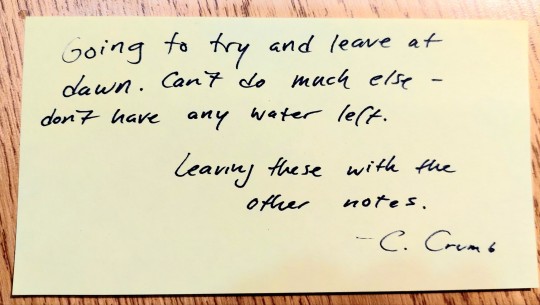 Going to try and leave at
dawn. Can't do much else -
don't have any water left.
Leaving these with the
other notes.
- C. Crumb